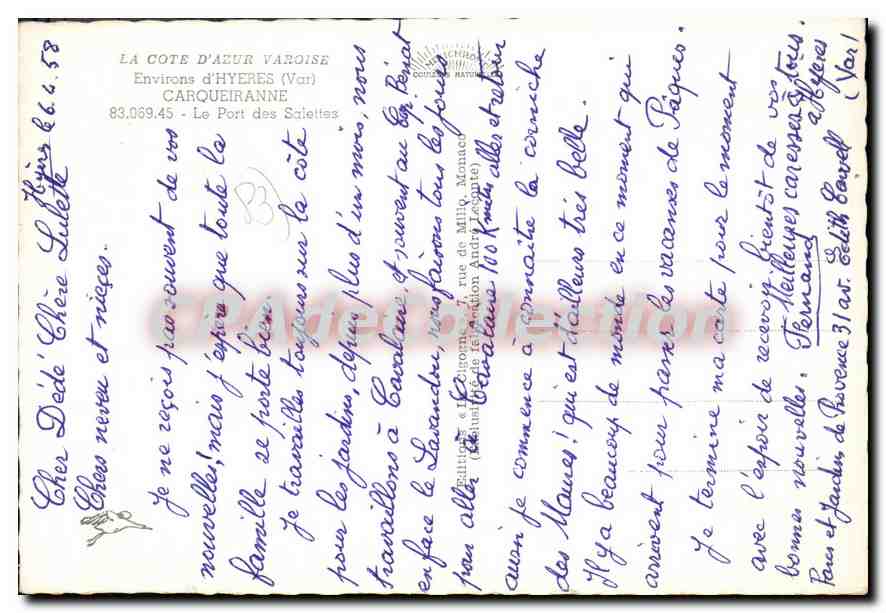 LA COTE D'AZUR VAROISE
Environs d'HYERES (Var)
CARQUEIRANNE
83.069.45 - Le Port des Salettes
Editions « La Cigogne » 7, rue de Millo, Monaco
(Exclusivité de fabrication André Leconte)
CPA Collection
Hyères le 6.4.58
Cher Dédé Chère Lulette
Chers neveu et nièces.
Je ne reçois pas souvent de vos
nouvelles! mais j'espère que toute la
famille se porte bien.
Je travailles toujours sur la côte
pour les jardins, depuis plus d'un mois, nous
travaillons à Cavalaire, et souvent au Cap Bénat
en face le Lavandou, nous faisons tous les jours
pour aller à Cavalaire 100 Km aller et retour
aussi je commence à connaître la corniche
des Maures! qui est d'ailleurs très belle.
Il y a beaucoup de monde en ce moment qui
arrivent pour passer les vacances de Pâques.
Je termine ma carte pour le moment
avec l'espoir de recevoir bientôt de vos
bonnes nouvelles. Meilleures caresses à tous.
Fernand
Parcs et Jardins de Provence 31 av. Edith Cavell à Hyères
(Var)